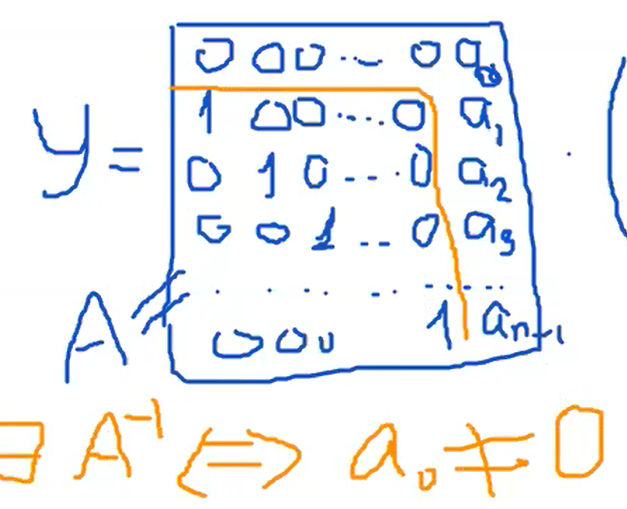 0 0 0 ... 0 a₀
1 0 0 .... 0 a₁
y = 0 1 0 --- . 0 a₂ · (
0 0 1 .. 0 a₃
. . . . . . . . . .
A = 0 0 0 1 aₙ₋₁
∃ A⁻¹ ⇔ a₀ ≠ 0